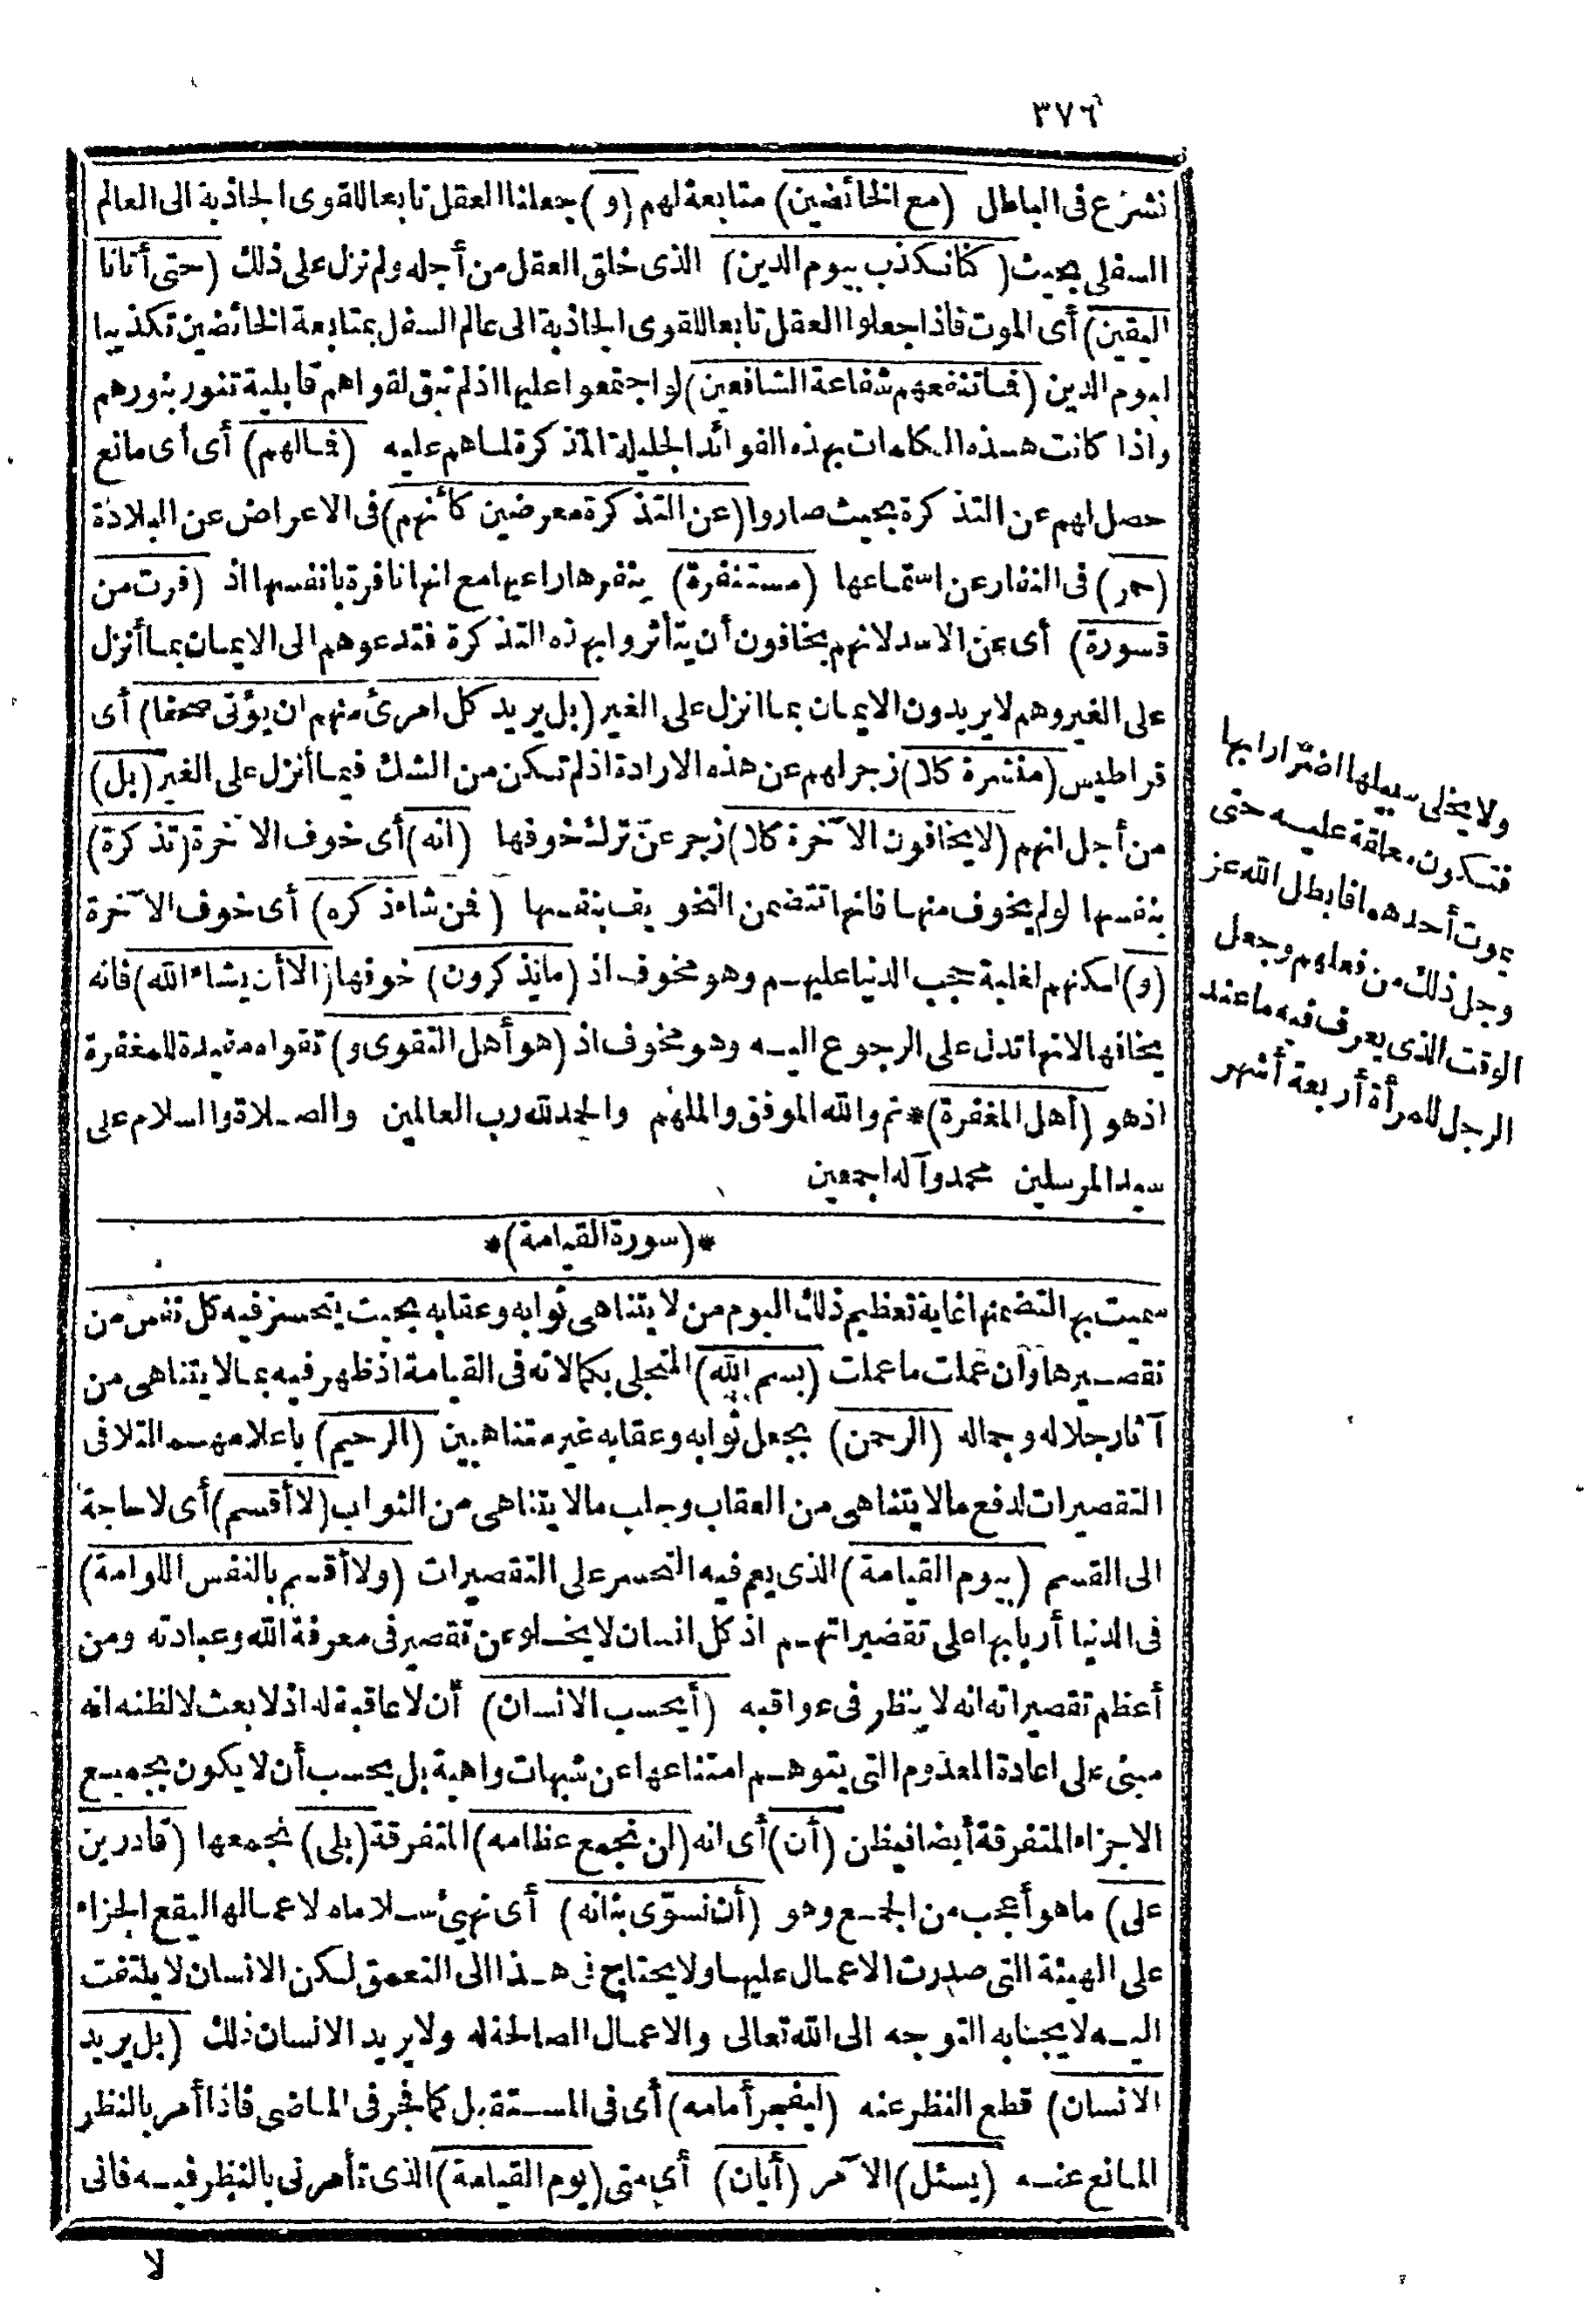 ٣٧٦
نشرع فى الباطل (مع الخائضين) متابعة لهم (و) جعلنا العقل تابعا للقوى الجاذبة الى العالم
السفلى بحيث (كنا نكذب بيوم الدين) الذى خلق العقل من أجله ولم نزل على ذلك (حتى أتانا
اليقين) أى الموت فاذا جعلوا العقل تابعا للقوى الجاذبة الى عالم السفل بمتابعة الخائضين تكذيبا
ليوم الدين (فما تنفعهم شفاعة الشافعين) لو اجتمعوا عليها اذ لم تبق لقواهم قابلية تنور بنورهم
واذا كانت هذه الكلمات بهذه الفوائد الجليلة المذكرة لما هم عليه (فما لهم) أى أى مانع
حصل لهم عن التذكرة بحيث صاروا (عن التذكرة معرضين كأنهم) فى الاعراض عن البلادة
(حمر) فى النفار عن استماعها (مستنفرة) ينفرها راعيها مع انها نافرة بانفسها اذ (فرت من
قسورة) أى عن الاسد لانهم يخافون أن يتأثروا بهذه التذكرة فتدعوهم الى الايمان بما أنزل
على الغير وهم لا يريدون الايمان بما انزل على الغير (بل يريد كل امرئ منهم ان يؤتى صحفا) أى
قراطيس (منشرة كلا) زجر لهم عن هذه الارادة اذ لم تكن من الشك فيما أنزل على الغير (بل)
من أجل انهم (لا يخافون الآخرة كلا) زجر عن ترك خوفها (انه) أى خوف الآخرة (تذكرة)
بنفسها لو لم يخوف منها فانها تتضمن التخويف بنفسها (فمن شاء ذكره) أى خوف الآخرة
(و) لكنهم لغلبة حجب الدنيا عليهم وهو مخوف اذ (ما يذكرون) خوفها (الا أن يشاء الله) فانه
يخافها لانها تدل على الرجوع اليه وهو مخوف اذ (هو أهل التقوى و) تقواه مفيدة للمغفرة
اذ هو (أهل المغفرة) * تم والله الموفق والملهم والحمد لله رب العالمين والصلاة والسلام على
سيد المرسلين محمد وآله اجمعين
*(سورة القيامة)*
سميت بها لتضمنها غاية تعظيم ذلك اليوم من لا يتناهى ثوابه وعقابه بحيث يتحسر فيه كل نفس من
تقصيرها وان عملت ما عملت (بسم الله) المتجلى بكمالاته فى القيامة اذ ظهر فيه بما لا يتناهى من
آثار جلاله وجماله (الرحمن) بجعل ثوابه وعقابه غير متناهيين (الرحيم) باعلامهم التلافى
التقصيرات لدفع ما لا يتناهى من العقاب وجلب ما لا يتناهى من الثواب (لا أقسم) أى لا حاجة
الى القسم (بيوم القيامة) الذى يعم فيه التحسر على التقصيرات (ولا أقسم بالنفس اللوامة)
فى الدنيا أربابها على تقصيراتهم اذ كل انسان لا يخلو عن تقصير فى معرفة الله وعبادته ومن
أعظم تقصيراته انه لا ينظر فى عواقبه (أيحسب الانسان) أن لا عاقبة له اذ لا بعث لا لظنه انه
مبنى على اعادة المعدوم التى يتوهم امتناعها عن شبهات واهية بل يحسب أن لا يكون بجميع
الاجزاء المتفرقة أيضا فيظن (أن) أى انه (لن نجمع عظامه) المتفرقة (بلى) نجمعها (قادرين
على) ما هو أعجب من الجمع وهو (أن نسوّى بنانه) أى نهيئ سلاماه لاعمالها ليقع الجزاء
على الهيئة التى صدرت الاعمال عليها ولا يحتاج فى هذا الى التعمق لكن الانسان لا يلتفت
اليه لا يجنابه التوجه الى الله تعالى والاعمال الصالحة له ولا يريد الانسان ذلك (بل يريد
الانسان) قطع النظر عنه (ليفجر أمامه) أى فى المستقبل كما فجر فى الماضى فاذا أمر بالنظر
المانع عنه (يسئل) الآمر (أيان) أى متى (يوم القيامة) الذى تأمرنى بالنظر فيه فانى
لا
ولا يخلى سبيلها اضرارا بها
فتكون معلقة عليه حتى
يموت أحدهما فابطل الله عز
وجل ذلك من فعلهم وجعل
الوقت الذى يعرف فيه ما عند
الرجل للمرأة أربعة أشهر